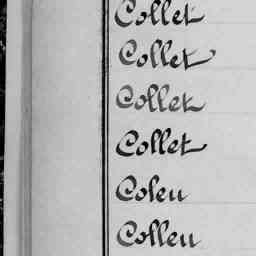 Collet
Collet
Collet
Collet
Coleu
Colleu